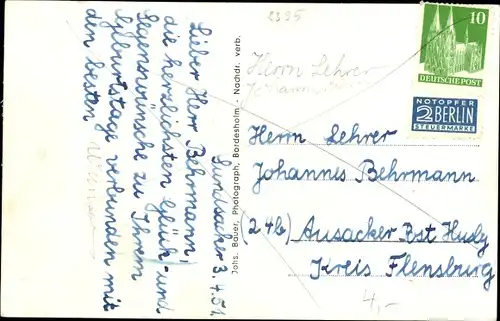 2395
10
DEUTSCHE POST
NOTOPFER
2 BERLIN
STEUERMARKE
Herrn Lehrer
Johannes
Herrn Lehrer
Johannes Behrmann
(24b) Ausacker Post Husby
Kreis Flensburg
4,-
Johs. Bauer, Photograph, Bordesholm - Nachdr. verb.
Lundsacker 3.4.51
Lieber Herr Behrmann!
die herzlichsten Glück- und
Segenswünsche zu Ihrem
Geburtstage verbunden mit
den besten